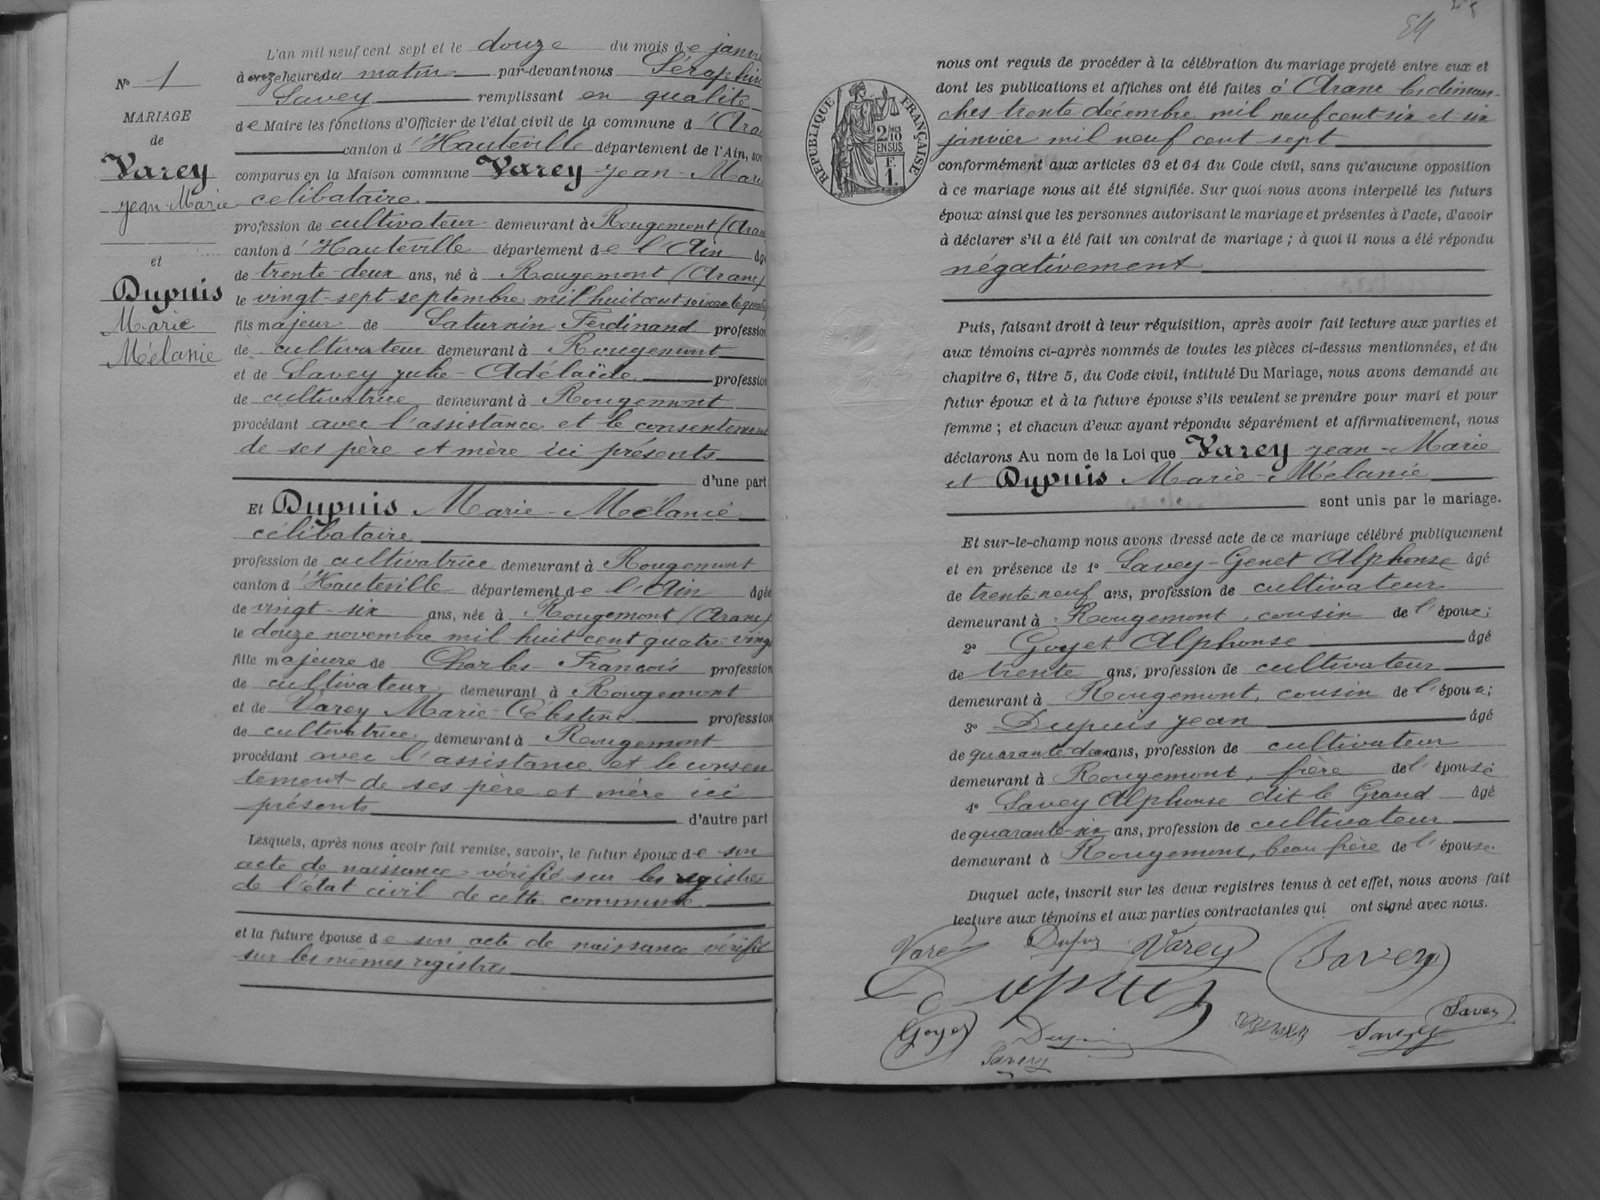 N° 1
MARIAGE
de
Varey
Jean-Marie
et
Dupuis
Marie
Mélanie
L'an mil neuf cent sept et le douze du mois de janvi
à onze heures du matin par-devant nous Séraphin
Savey remplissant en qualité
de Maire les fonctions d'Officier de l'état civil de la commune d'Aran
canton d'Hauteville département de l'Ain, son
comparus en la Maison commune Varey Jean-Marie
célibataire
profession de cultivateur demeurant à Rougemont (Aranc
canton d'Hauteville département de l'Ain âgé
de trente-deux ans, né à Rougemont (Aranc)
le vingt-sept septembre mil huit cent soixante quat
fils majeur de Saturnin Ferdinand profession
de cultivateur demeurant à Rougemont
et de Savey Julie-Adélaïde profession
de cultivatrice demeurant à Rougemont
procédant avec l'assistance et le consentement
de ses père et mère ici présents
d'une part
Et Dupuis Marie-Mélanie
célibataire
profession de cultivatrice demeurant à Rougemont
canton d'Hauteville département de l'Ain âgée
de vingt-six ans, née à Rougemont (Aranc)
le douze novembre mil huit cent quatre-vingt
fille majeure de Charles-François profession
de cultivateur demeurant à Rougemont
et de Varey Marie-Célestine profession
de cultivatrice demeurant à Rougemont
procédant avec l'assistance et le consen
tement de ses père et mère ici
présents d'autre part
Lesquels, après nous avoir fait remise, savoir, le futur époux de son
acte de naissance vérifié sur les registres
de l'état civil de cette commune
et la future épouse de son acte de naissance vérifié
sur les mêmes registres
84
RÉPUBLIQUE FRANÇAISE
2/10 EN SUS
F. 1.
nous ont requis de procéder à la célébration du mariage projeté entre eux et
dont les publications et affiches ont été faites à Aranc les diman-
ches trente décembre mil neuf cent six et six
janvier mil neuf cent sept
conformément aux articles 63 et 64 du Code civil, sans qu'aucune opposition
à ce mariage nous ait été signifiée. Sur quoi nous avons interpellé les futurs
époux ainsi que les personnes autorisant le mariage et présentes à l'acte, d'avoir
à déclarer s'il a été fait un contrat de mariage ; à quoi il nous a été répondu
négativement
Puis, faisant droit à leur réquisition, après avoir fait lecture aux parties et
aux témoins ci-après nommés de toutes les pièces ci-dessus mentionnées, et du
chapitre 6, titre 5, du Code civil, intitulé Du Mariage, nous avons demandé au
futur époux et à la future épouse s'ils veulent se prendre pour mari et pour
femme ; et chacun d'eux ayant répondu séparément et affirmativement, nous
déclarons Au nom de la Loi que Varey Jean-Marie
et Dupuis Marie-Mélanie
sont unis par le mariage.
Et sur-le-champ nous avons dressé acte de ce mariage célébré publiquement
et en présence de 1° Savey-Genet Alphonse âgé
de trente-neuf ans, profession de cultivateur
demeurant à Rougemont, cousin de l'époux ;
2° Goyet Alphonse âgé
de trente ans, profession de cultivateur
demeurant à Rougemont, cousin de l'époux ;
3° Dupuis Jean âgé
de quarante-deux ans, profession de cultivateur
demeurant à Rougemont, frère de l'épouse
4° Savey Alphonse dit le Grand âgé
de quarante-six ans, profession de cultivateur
demeurant à Rougemont, beau frère de l'épouse.
Duquel acte, inscrit sur les deux registres tenus à cet effet, nous avons fait
lecture aux témoins et aux parties contractantes qui ont signé avec nous.
Varey Dupuis Varey Savey
Dupuis Savey
Goyet Dupuis Savey
Savey